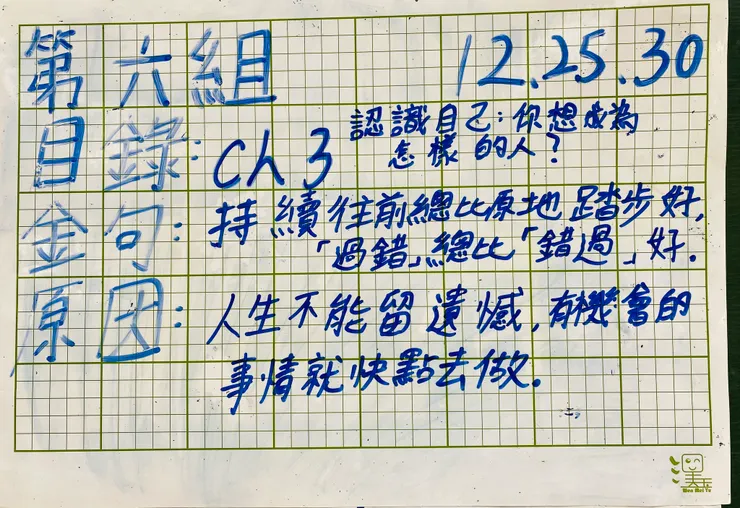 第六組 12.25.30
目錄: Ch 3 認識自己:你想成為
怎樣的人?
金句: 持續往前總比原地踏步好,
「過錯」總比「錯過」好.
原因: 人生不能留遺憾,有機會的
事情就快點去做.